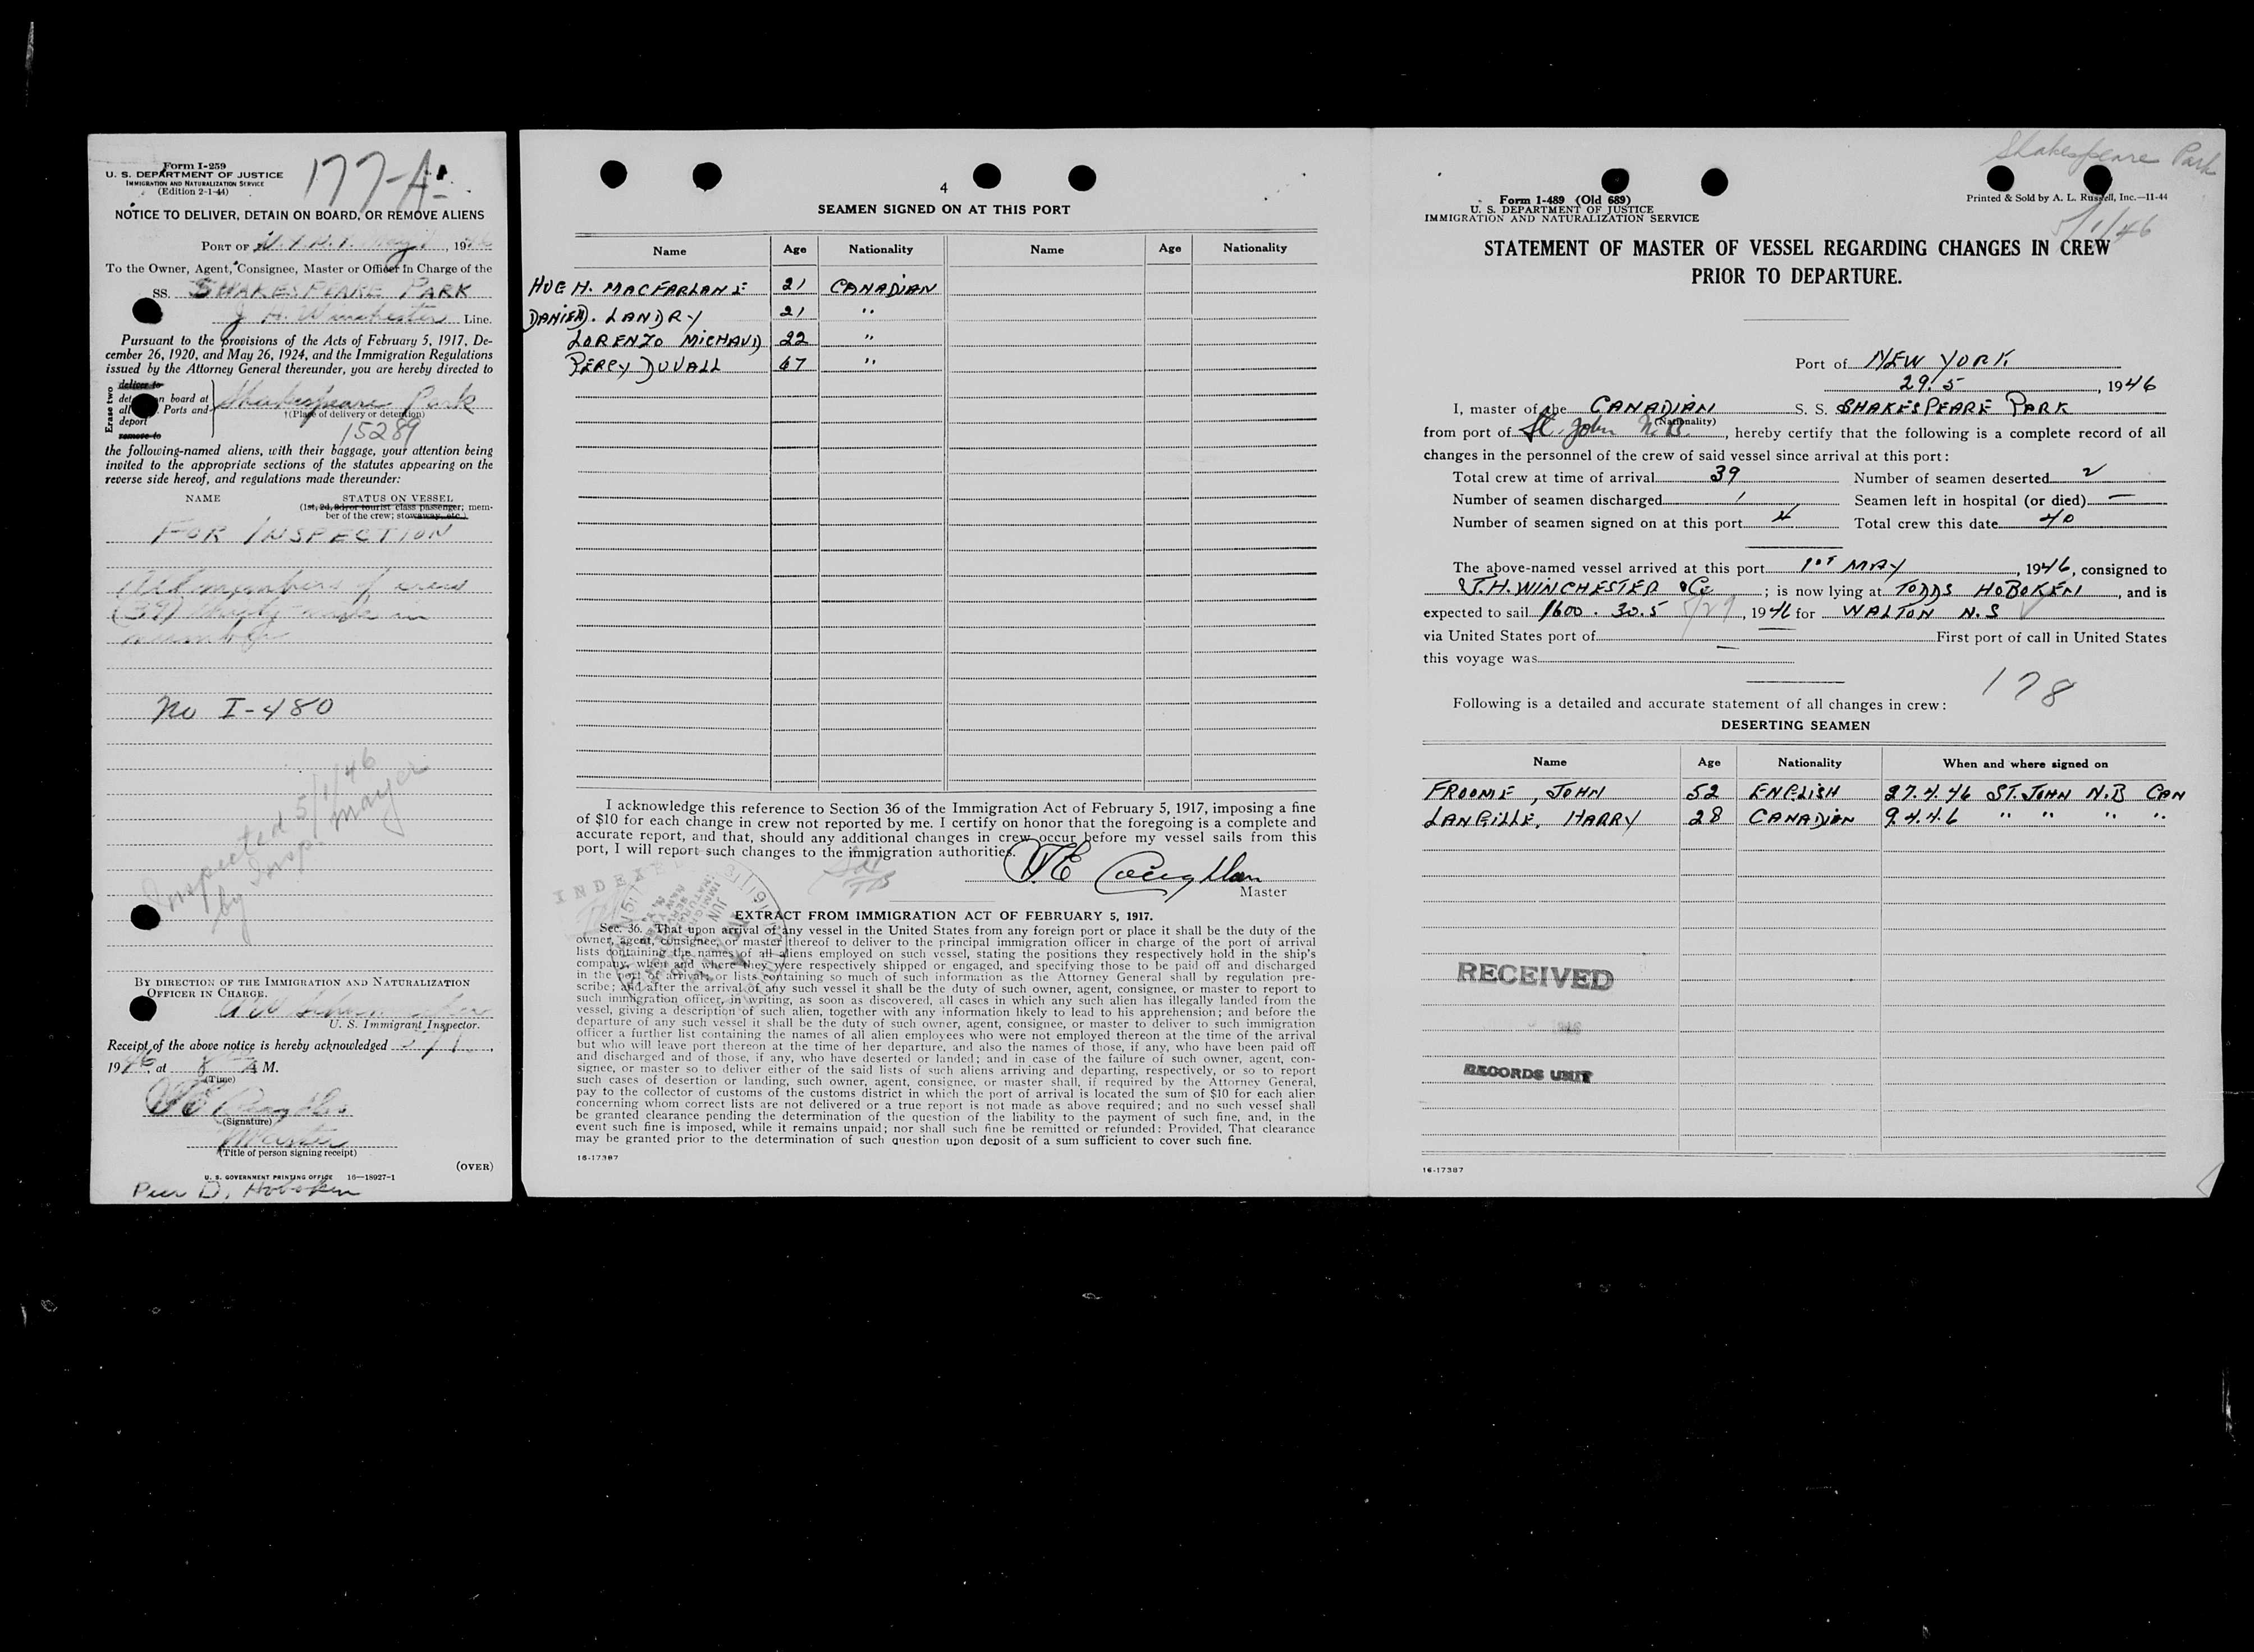 Form I-259
U. S. DEPARTMENT OF JUSTICE
IMMIGRATION AND NATURALIZATION SERVICE
(Edition 2-1-44)
177-A
NOTICE TO DELIVER, DETAIN ON BOARD, OR REMOVE ALIENS
PORT OF N.Y.N.Y. May 1, 1946
To the Owner, Agent, Consignee, Master or Officer In Charge of the
SS. SHAKESPEARE PARK
J. H. Winchester Line.
Pursuant to the provisions of the Acts of February 5, 1917, De-
cember 26, 1920, and May 26, 1924, and the Immigration Regulations
issued by the Attorney General thereunder, you are hereby directed to
Erase two
deliver to
det n on board at
all Ports and
deport
remove to
Shakespeare Park
†(Place of delivery or detention)
15289
the following-named aliens, with their baggage, your attention being
invited to the appropriate sections of the statutes appearing on the
reverse side hereof, and regulations made thereunder:
NAME STATUS ON VESSEL
(1st, 2d, 3d, or tourist class passenger; mem-
ber of the crew; stowaway, etc.)
FOR INSPECTION
All members of crew
(39) thirty-nine in
number
No I-480
Inspected 5/1/46
by Insp. Mayer
BY DIRECTION OF THE IMMIGRATION AND NATURALIZATION
OFFICER IN CHARGE.
U. S. Immigrant Inspector.
Receipt of the above notice is hereby acknowledged 5/1,
1946, at 8 A M.
(Time)
(Signature)
Master
(Title of person signing receipt)
(OVER)
U. S. GOVERNMENT PRINTING OFFICE 16—18927-1
Pier D, Hoboken
4
SEAMEN SIGNED ON AT THIS PORT
Name Age Nationality Name Age Nationality
HUGH. MACFARLANE 21 CANADIAN
DANIEL. LANDRY 21 "
LORENZO MICHAUD 22 "
PERCY DUVALL 67 "
I acknowledge this reference to Section 36 of the Immigration Act of February 5, 1917, imposing a fine
of $10 for each change in crew not reported by me. I certify on honor that the foregoing is a complete and
accurate report, and that, should any additional changes in crew occur before my vessel sails from this
port, I will report such changes to the immigration authorities.
Coughlan
Master
INDEXED
EXTRACT FROM IMMIGRATION ACT OF FEBRUARY 5, 1917.
Sec. 36. That upon arrival of any vessel in the United States from any foreign port or place it shall be the duty of the
owner, agent, consignee, or master thereof to deliver to the principal immigration officer in charge of the port of arrival
lists containing the names of all aliens employed on such vessel, stating the positions they respectively hold in the ship's
company, when and where they were respectively shipped or engaged, and specifying those to be paid off and discharged
in the port of arrival; or lists containing so much of such information as the Attorney General shall by regulation pre-
scribe; and after the arrival of any such vessel it shall be the duty of such owner, agent, consignee, or master to report to
such immigration officer, in writing, as soon as discovered, all cases in which any such alien has illegally landed from the
vessel, giving a description of such alien, together with any information likely to lead to his apprehension; and before the
departure of any such vessel it shall be the duty of such owner, agent, consignee, or master to deliver to such immigration
officer a further list containing the names of all alien employees who were not employed thereon at the time of the arrival
but who will leave port thereon at the time of her departure, and also the names of those, if any, who have been paid off
and discharged and of those, if any, who have deserted or landed; and in case of the failure of such owner, agent, con-
signee, or master so to deliver either of the said lists of such aliens arriving and departing, respectively, or so to report
such cases of desertion or landing, such owner, agent, consignee, or master shall, if required by the Attorney General,
pay to the collector of customs of the customs district in which the port of arrival is located the sum of $10 for each alien
concerning whom correct lists are not delivered or a true report is not made as above required; and no such vessel shall
be granted clearance pending the determination of the question of the liability to the payment of such fine, and, in the
event such fine is imposed, while it remains unpaid; nor shall such fine be remitted or refunded: Provided, That clearance
may be granted prior to the determination of such question upon deposit of a sum sufficient to cover such fine.
16-17387
Shakespeare Park
5/1/46
Form 1-489 (Old 689)
U. S. DEPARTMENT OF JUSTICE
IMMIGRATION AND NATURALIZATION SERVICE
Printed & Sold by A. L. Russell, Inc.—11-44
STATEMENT OF MASTER OF VESSEL REGARDING CHANGES IN CREW
PRIOR TO DEPARTURE.
Port of NEW YORK
29.5, 1946
I, master of the CANADIAN S. S. SHAKESPEARE PARK
(Nationality)
from port of St. John N.B., hereby certify that the following is a complete record of all
changes in the personnel of the crew of said vessel since arrival at this port:
Total crew at time of arrival 39 Number of seamen deserted 2
Number of seamen discharged 1 Seamen left in hospital (or died) —
Number of seamen signed on at this port 4 Total crew this date 40
The above-named vessel arrived at this port 1ST MAY, 1946, consigned to
J.H. WINCHESTER & Co; is now lying at TODDS HOBOKEN, and is
expected to sail 1600. 30.5 5/29, 1946 for WALTON N.S
via United States port of — First port of call in United States
this voyage was —
178
Following is a detailed and accurate statement of all changes in crew:
DESERTING SEAMEN
Name Age Nationality When and where signed on
FROOME, JOHN 52 ENGLISH 27.4.46 ST. JOHN N.B CAN
LANGILLE, HARRY 28 CANADIAN 9.4.46 " " " "
RECEIVED
1946
RECORDS UNIT
16-17387